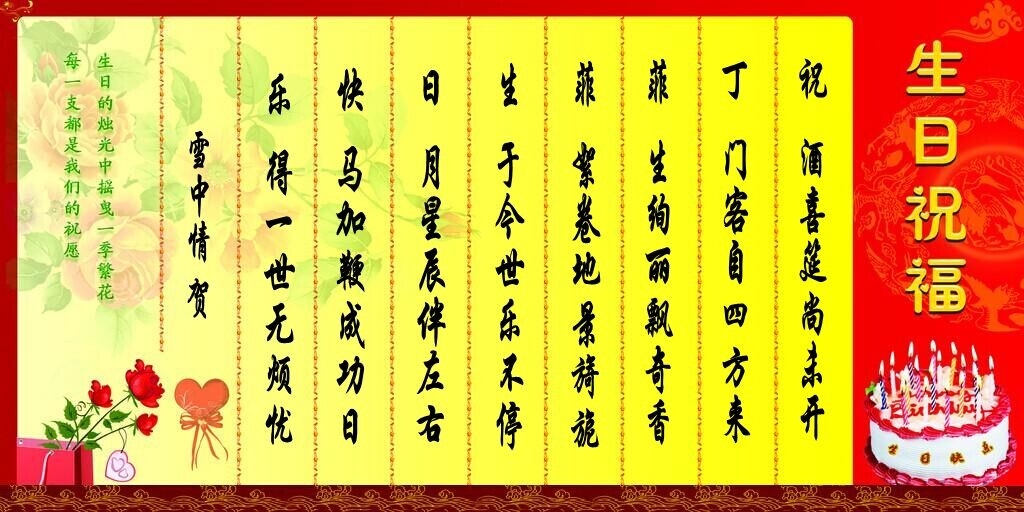 生日祝福
祝酒喜筵尚未开
丁门客自四方来
菲生绚丽飘奇香
菲絮卷地景旖旎
生于今世乐不停
日月星辰伴左右
快马加鞭成功日
乐得一世无烦忧
雪中情贺
生日的烛光中摇曳一季繁花
每一支都是我们的祝愿
生日快乐